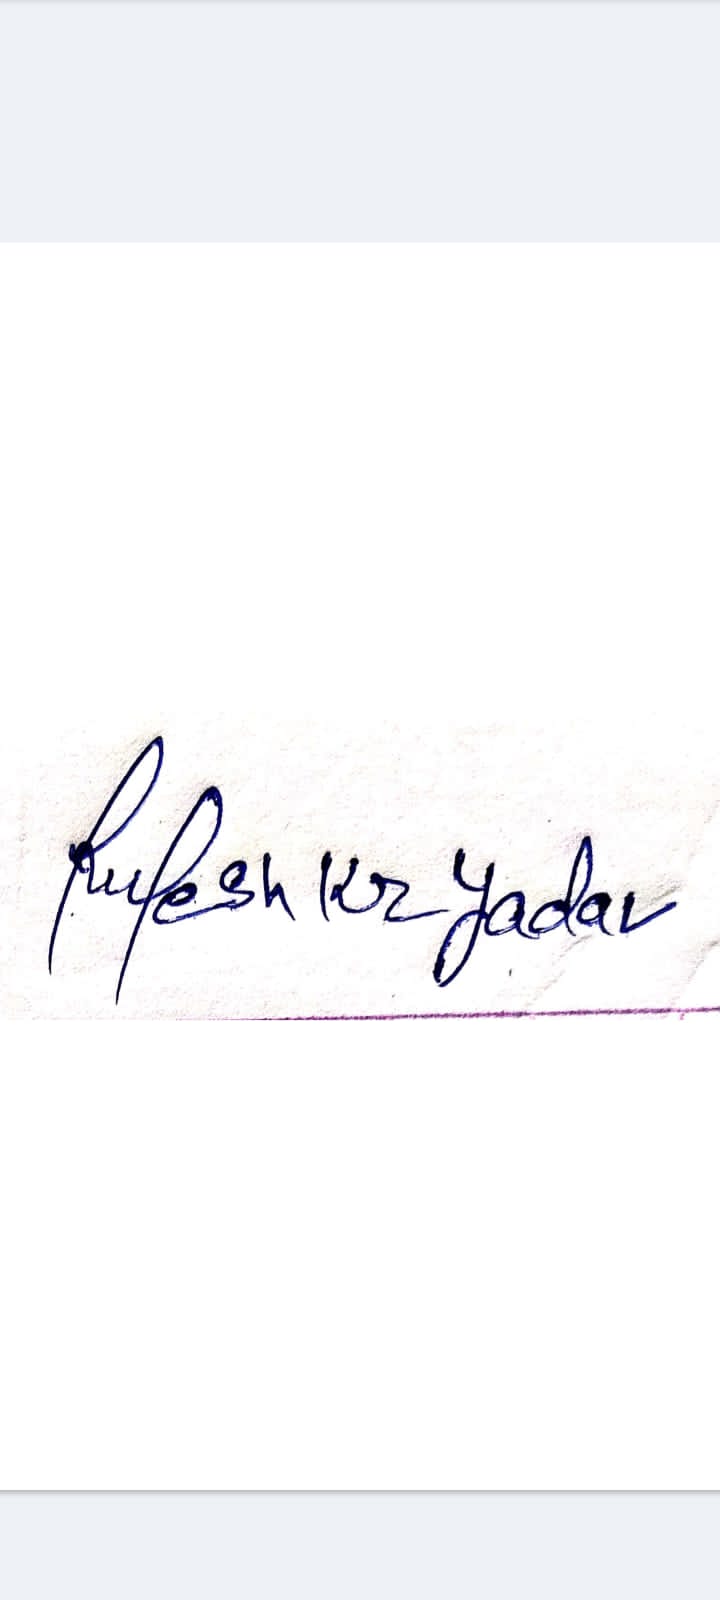 Rupesh Kr Yadav